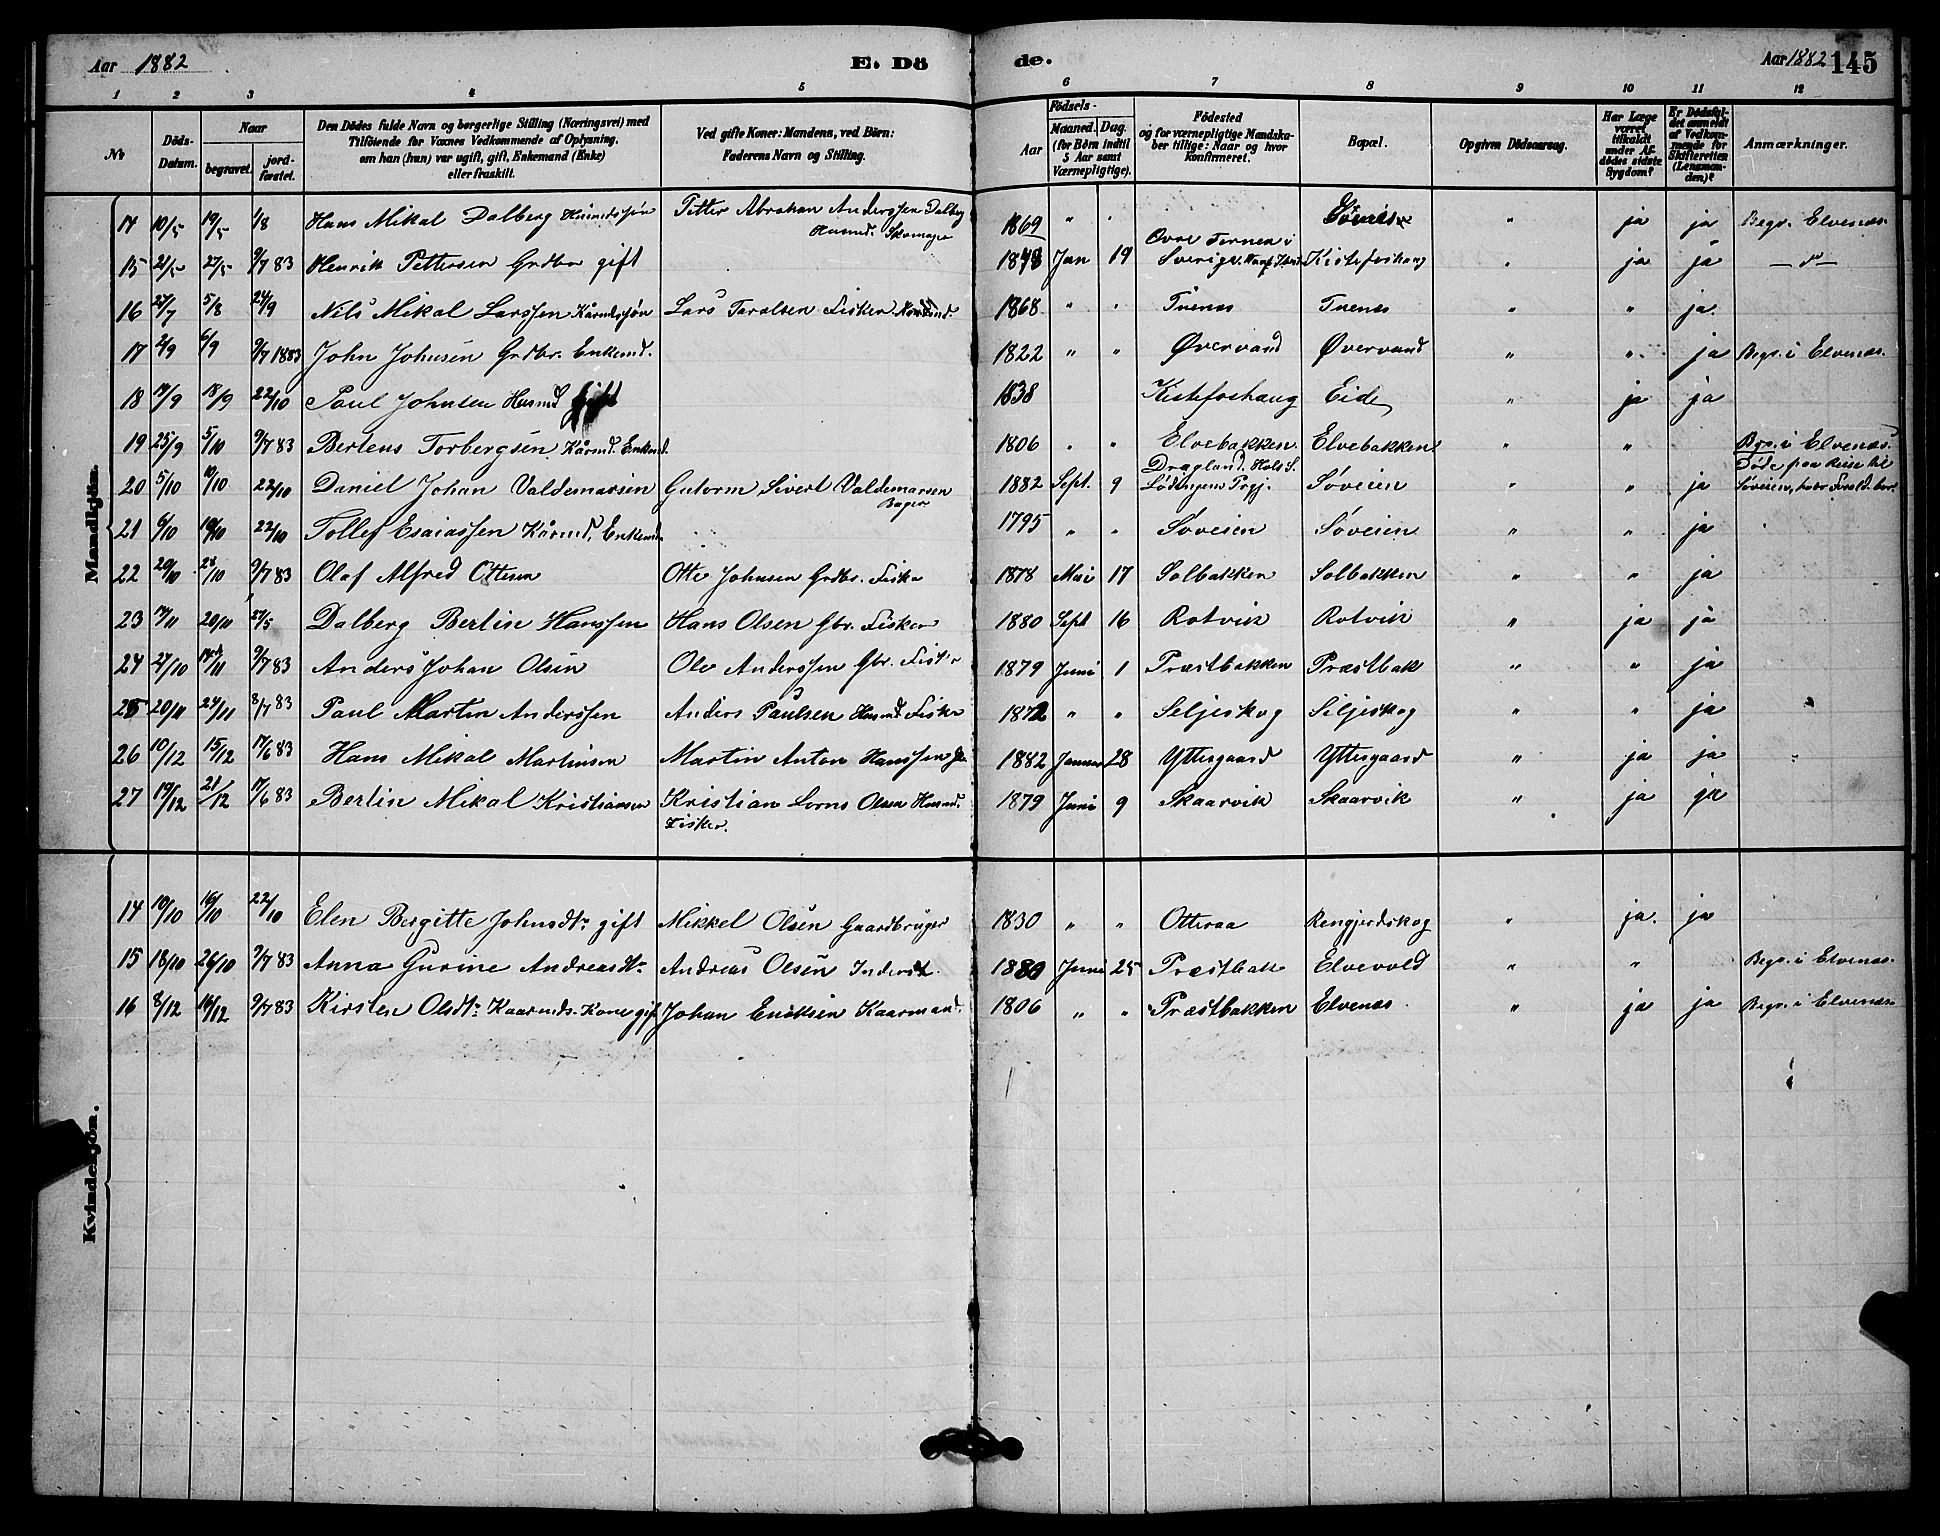 Aar 1882 E. Dö de. Aar 1882 145
1 2 3 4 5 6 7 8 9 10 11 12
№ Döds-Datum. Naar begravet. jord-fæstet. Den Dödes fulde Navn og borgerlige Stilling (Næringsvei) med Tilföiende for Voxnes Vedkommende af Oplysning, om han (hun) var ugift, gift, Enkemand (Enke) eller fraskilt. Ved gifte Koner: Mandens, ved Börn: Faderens Navn og Stilling. Födsels- Aar Maaned. Dag. (for Börn indtil 5 Aar samt Værnepligtige). Födested og for værnepligtige Mandskaber tillige: Naar og hvor konfirmeret. Bopæl. Opgiven Dödsaarsag. Har Læge været tilkaldt under Afdödes sidste Sygdom? Er Dödsfaldet anmeldt af Vedkommende for Skifteretten (Lensmanden)? Anmærkninger.
Mandkjön.
14 10/5 19/5 1/8 Hans Mikal Dalberg Husmdssøn Petter Abraham Anderssen Dalberg Husmd. Skomager 1869 " " " ja ja Begr. Elvenæs
15 21/5 27/5 9/7 83 Henrik Pettersen Grdbr gift 1848 Jan 19 Øvre Tornea i Sverige Kistefoshaug " ja ja — do —
16 27/7 5/8 24/9 Nils Mikal Larssen Kårmdssøn Lars Taralsen Fisker 1868 " " Tuenes Tuenes " " ja
17 2/9 6/9 9/7 1883 John Johnsen Grdbr. Enkemd. 1822 " " Øvervand Øvervand " " ja Begr. i Elvenæs
18 14/9 18/9 22/10 Paul Johnsen Husmd gift 1838 Kistefoshaug Eide " ja ja
19 25/9 5/10 9/7 83 Berteus Torbergsen Kårmd. Enkemd. 1806 " " Elvebakken Elvebakken " " Begr. i Elvenæs
20 5/10 10/10 22/10 Daniel Johan Valdemarsen Gutorm Sivert Valdemarsen Bager 1882 Sept. 9 Dragland. Hols S. Lødingens Prgj. Søveien " " ja Døde paa Reise til Søveien, hvor Foræld. bor.
21 6/10 10/10 22/10 Tollef Esaiassen Kårmd, Enkemd. 1795 " " Søveien Søveien " " ja
22 20/10 28/10 9/7 83 Olaf Alfred Ottesen Otte Johnsen Grdbr. Fisker 1878 Mai 17 Solbakken Solbakken " " ja
23 14/11 20/10 27/5 Dalberg Bertin Hanssen Hans Olsen Gbr. Fisker 1880 Sept 16 Rotvik Rotvik " ja ja
24 27/10 14/11 9/7 83 Anders Johan Olsen Ole Anderssen Gbr. Fisker 1879 Juni 1 Præstbakken Præstbak " " ja
25 20/11 24/11 8/7 83 Paul Martin Anderssen Anders Paulsen Husmd Fisker 1872 " " Seljeskog Siljeskog " " ja
26 10/12 15/12 17/6 83 Hans Mikal Martinsen Martin Anton Hanssen 1882 Januar 28 Yttergaard Yttergaard " ja ja "
27 19/12 21/12 17/6 83 Bertin Mikal Kristiansen Kristian Lorns Olsen Husmd. Fisker. 1879 Juni 9 Skaarvik Skaarvik " ja ja
Kvindekjön.
14 10/10 16/10 22/10 Elen Bergitte Johnsdtr gift Mikkel Olsen Gaardbruger 1830 " " Otteraa Rengjerdskog " ja. ja
15 18/10 26/10 9/7 83 Anna Gurine Andreasdtr Andreas Olsen Inderst. 1880 Juni 25 Præstbak Elvevold " " Begr. i Elvenæs
16 8/12 16/12 9/7 83 Kirsten Olsdtr Kaarmds. Kone gift Johan Eriksen Kaarmand. 1806 " " Præstbakken Elvenæs " ja ja Begr. i Elvenæs